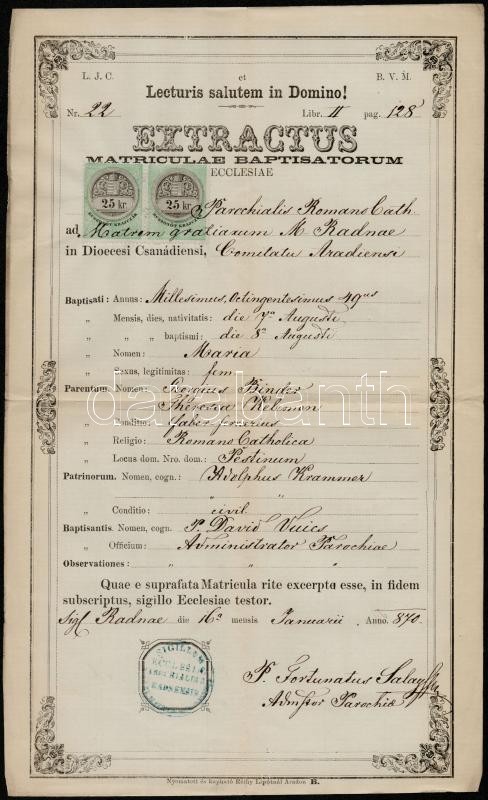 L. J. C. et B. V. M.
Lecturis salutem in Domino!
Nr. 22 Libr. II pag. 128
EXTRACTUS
MATRICULAE BAPTISATORUM
ECCLESIAE
25 kr. 25 kr.
Parochialis Romano Cath.
ad Matrem gratiarum M Radnae
in Dioecesi Csanádiensi, Comitatu Aradiensi
Baptisati: Annus: Millesimus, Octingentesimus 49us
„ Mensis, dies, nativitatis: die 7a Augusti
„ „ „ baptismi: die 8a Augusti
„ Nomen: Maria
„ Sexus, legitimitas: fem
Parentum: Nomen: Georgius Binder
Theresia Kelemen
„ Conditio: Faber ferrarius
„ Religio: Romano Catholica
„ Locus dom. Nro. dom.: Pestinum
Patrinorum. Nomen, cogn.: Adolphus Krammer
„ „
„ Conditio: civil
Baptisantis. Nomen, cogn. P. David Vuics
„ Officium: Administrator Parochiae
Observationes: „ „ „ „
Quae e suprafata Matricula rite excerpta esse, in fidem
subscriptus, sigillo Ecclesiae testor.
Sigl Radnae die 16a mensis Januarii Anno 870.
SIGILLUM
ECCLESIAE
PAROCHIALIS
RADNENSIS
P. Fortunatus Salay
Admstor Parochiae
Nyomatott és kapható Réthy Lipótnál Aradon B.
darabanth